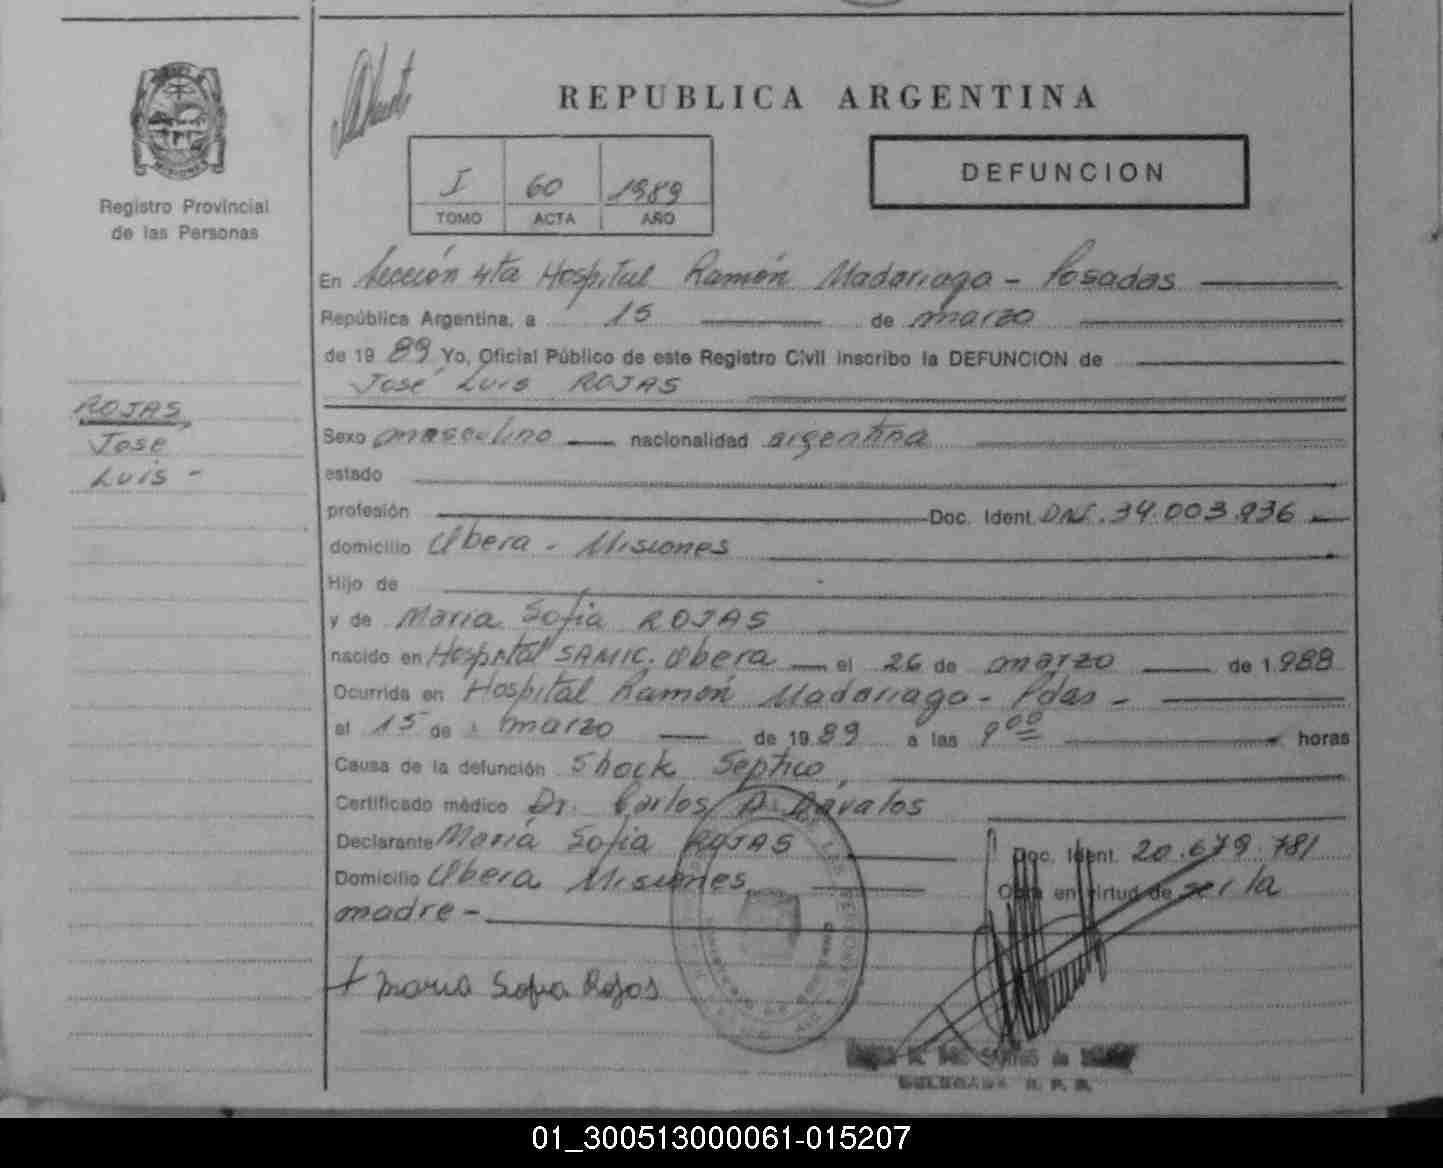 REPUBLICA ARGENTINA
DEFUNCION
I 60 1989
TOMO ACTA AÑO
Registro Provincial
de las Personas
En Sección 4ta Hospital Ramón Madariaga - Posadas
República Argentina, a 15 de marzo
de 19 89 Yo, Oficial Público de este Registro Civil inscribo la DEFUNCION de
José Luis ROJAS
ROJAS,
Jose
Luis -
Sexo masculino nacionalidad argentina
estado
profesión Doc. Ident. DNI. 34.003.936
domicilio Obera - Misiones
Hijo de
y de Maria Sofia ROJAS
nacido en Hospital SAMIC. Obera el 26 de marzo de 1.988
Ocurrida en Hospital Ramón Madariaga - Pdas -
el 15 de marzo de 19 89 a las 9 00 horas
Causa de la defunción Shock Septico
Certificado médico Dr. Carlos A. Davalos
Declarante María Sofia ROJAS Doc. Ident. 20.679.781
Domicilio Obera Misiones Obra en virtud de ser la
madre -
Maria Sofia Rojas
DELEGADA R. P. P.
01_300513000061-015207